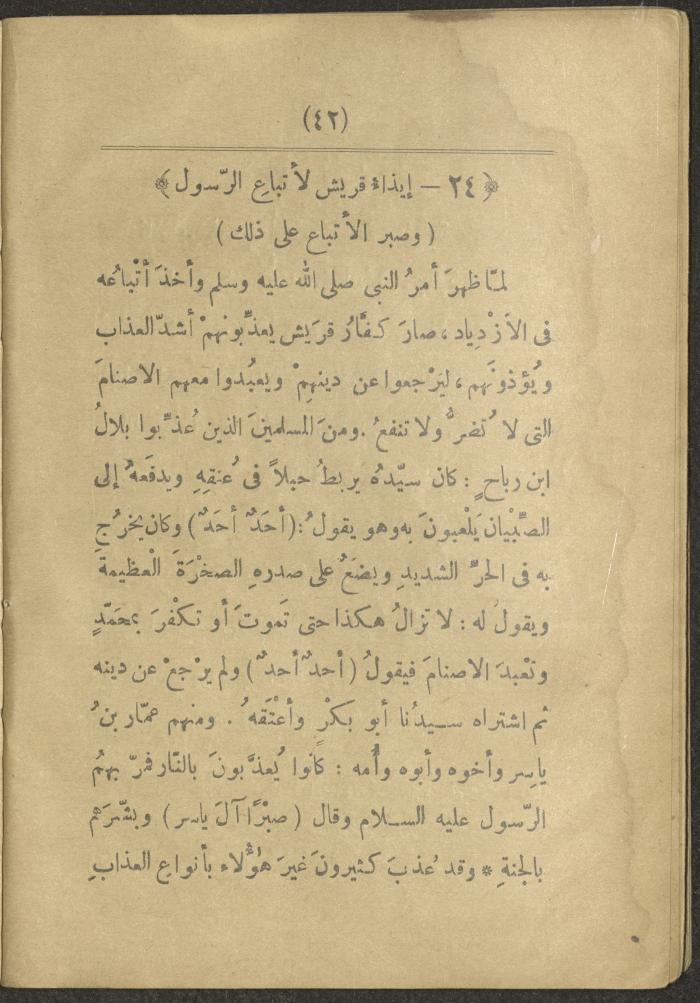 (٤٢)
﴿ ٢٤ – إيذاء قريش لأتباعِ الرّسول ﴾
( وصبر الأتباع على ذلك )
لمّا ظهرَ أمرُ النبى صلى الله عليه وسلم وأخذَ أتْباعُه
فى الاَزْدِياد ، صارَ كفَّارُ قرَيش يعذِّبونهمْ أشدّ العذاب
ويُؤذونَهم ، ليَرْجعوا عن دينهِمْ ويعبُدوا معهم الاصنامَ
التى لا تُضرُّ ولا تنفعُ . ومنَ المسلمينَ الذين عُذِّبوا بلالُ
ابن رباحٍ : كان سيّدُه يربطُ حبلاً فى عُنقِهِ ويدفَعهُ إلى
الصِّبْيان يَلْعبونَ به وهو يقولُ : ( أحَدٌ أحَدٌ ) وكان يخرُج
به فى الحرِّ الشديدِ ويضَعُ على صدرهِ الصخْرَةَ الْعظيمةَ
ويقولُ له : لا تزالُ هكذا حتى تَموتَ أو تكْفرَ بمحَمّدٍ
وتعْبدَ الاصنامَ فيقولُ ( أحدٌ أحدٌ ) ولم يرْجعْ عن دينه
ثم اشتراه سيدُنا أبو بكْرٍ وأعْتَقهُ . ومنهم عمّار بنُ
ياسِر وأخوه وأبوه وأُمه : كانُوا يُعذَّبونَ بالنّار فمرّ بهمُ
الرّسول عليه السلام وقال ( صبْرًا آلَ ياسر ) وبشّرَهم
بالجنةِ * وقد عُذبَ كثيرونَ غيرَ هٰؤُلاء بأنواعِ العذابِ